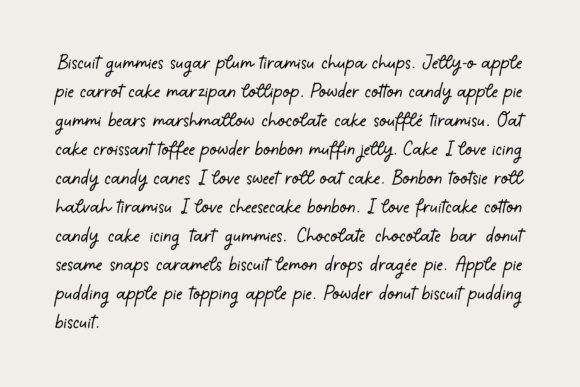 Biscuit gummies sugar plum tiramisu chupa chups. Jelly-o apple
pie carrot cake marzipan lollipop. Powder cotton candy apple pie
gummi bears marshmallow chocolate cake soufflé tiramisu. Oat
cake croissant toffee powder bonbon muffin jelly. Cake I love icing
candy candy canes I love sweet roll oat cake. Bonbon tootsie roll
halvah tiramisu I love cheesecake bonbon. I love fruitcake cotton
candy cake icing tart gummies. Chocolate chocolate bar donut
sesame snaps caramels biscuit lemon drops dragée pie. Apple pie
pudding apple pie topping apple pie. Powder donut biscuit pudding
biscuit.